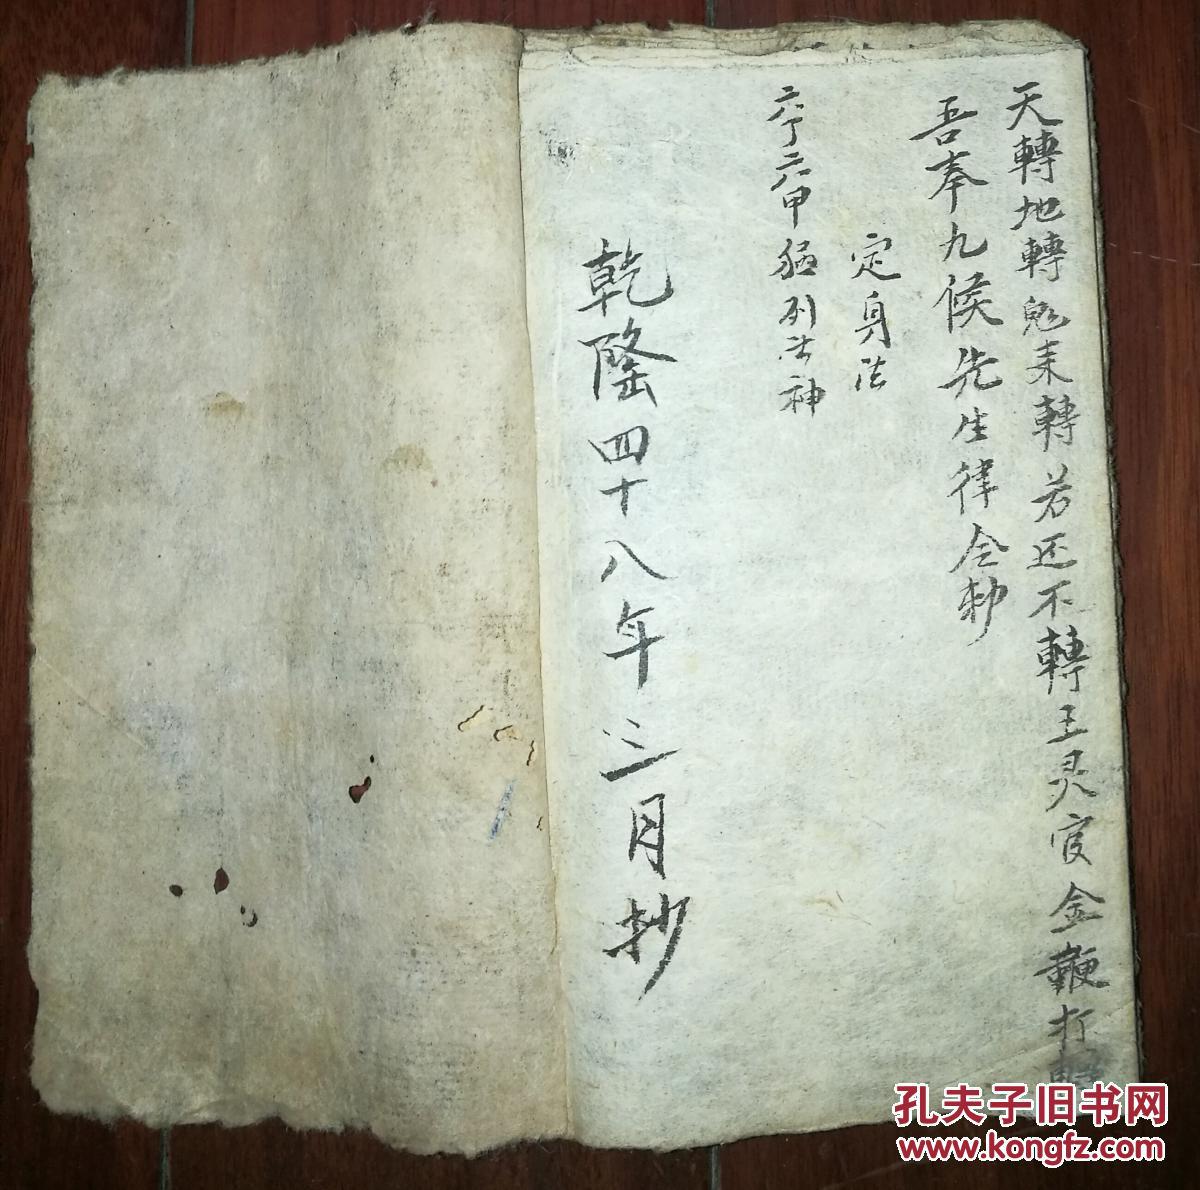 天轉地轉鬼未轉若还不轉王灵官金鞭打
吾奉九候先生律令勅
定身法
六丁六甲猛列法神
乾隆四十八年三月抄
孔夫子旧书网
www.kongfz.com